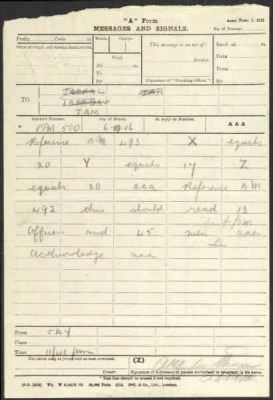 "A" Form
MESSAGES AND SIGNALS.
Army Form C. 2121
No. of Message
Prefix Code
Words. Charge.
This message is on a/c of :
Recd. at m.
Office of Origin and Service Instructions.
Sent
Date
At m.
Service.
From
To
By
(Signature of "Franking Officer.")
By
TO
JAM
Sender's Number. Day of Month. In reply to Number. AAA
500 6-10-16
Reference AM 493 X equals
20 Y equals 17 Z
equals 20 aaa Reference AM
492 this should read 13
Officers and 45 men aaa
Acknowledge aaa
From
Place
Time 11/40 pm
The above may be forwarded as now corrected. (Z)
Censor. Signature of Addressor or person authorised to telegraph in his name.
*This line should be erased if not required.